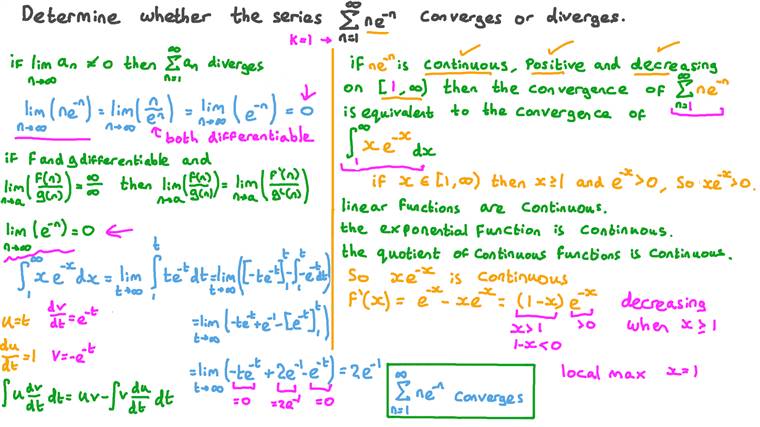 Determine whether the series ∞∑n=1 ne^-n converges or diverges.
k=1 →
if lim n→∞ an ≠ 0 then ∞∑n=1 an diverges
lim n→∞ (ne^-n) = lim n→∞ (n/e^n) = lim n→∞ (e^-n) = 0
↑ both differentiable
if f and g differentiable and
lim n→a (f(n)/g(n)) = ∞/∞ then lim n→a (f(n)/g(n)) = lim n→a (f'(n)/g'(n))
lim n→∞ (e^-n) = 0 ←
∫1^∞ xe^-x dx = lim t→∞ ∫1^t te^-t dt = lim t→∞ ([-te^-t]1^t - ∫1^t -e^-t dt)
u=t dv/dt = e^-t
= lim t→∞ (-te^-t + e^-1 - [e^-t]1^t)
du/dt = 1 v = -e^-t
= lim t→∞ (-te^-t + 2e^-1 - e^-t) = 2e^-1
=0 =2e^-1 =0
∫u dv/dt dt = uv - ∫v du/dt dt
if ne^-n is continuous, positive and decreasing
on [1, ∞) then the convergence of ∞∑n=1 ne^-n
is equivalent to the convergence of
∫1^∞ xe^-x dx
if x ∈ [1, ∞) then x ≥ 1 and e^-x > 0, so xe^-x > 0.
linear functions are continuous.
the exponential function is continuous.
the quotient of continuous functions is continuous.
So xe^-x is continuous
f'(x) = e^-x - xe^-x = (1-x) e^-x decreasing
x>1 >0 when x ≥ 1
1-x<0
local max x=1
∞∑n=1 ne^-n converges